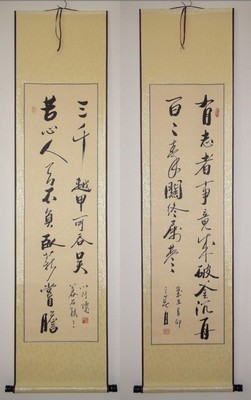 有志者事竟成破釜沉舟
百二秦關終屬楚
苦心人天不負臥薪嘗膽
三千越甲可吞吳